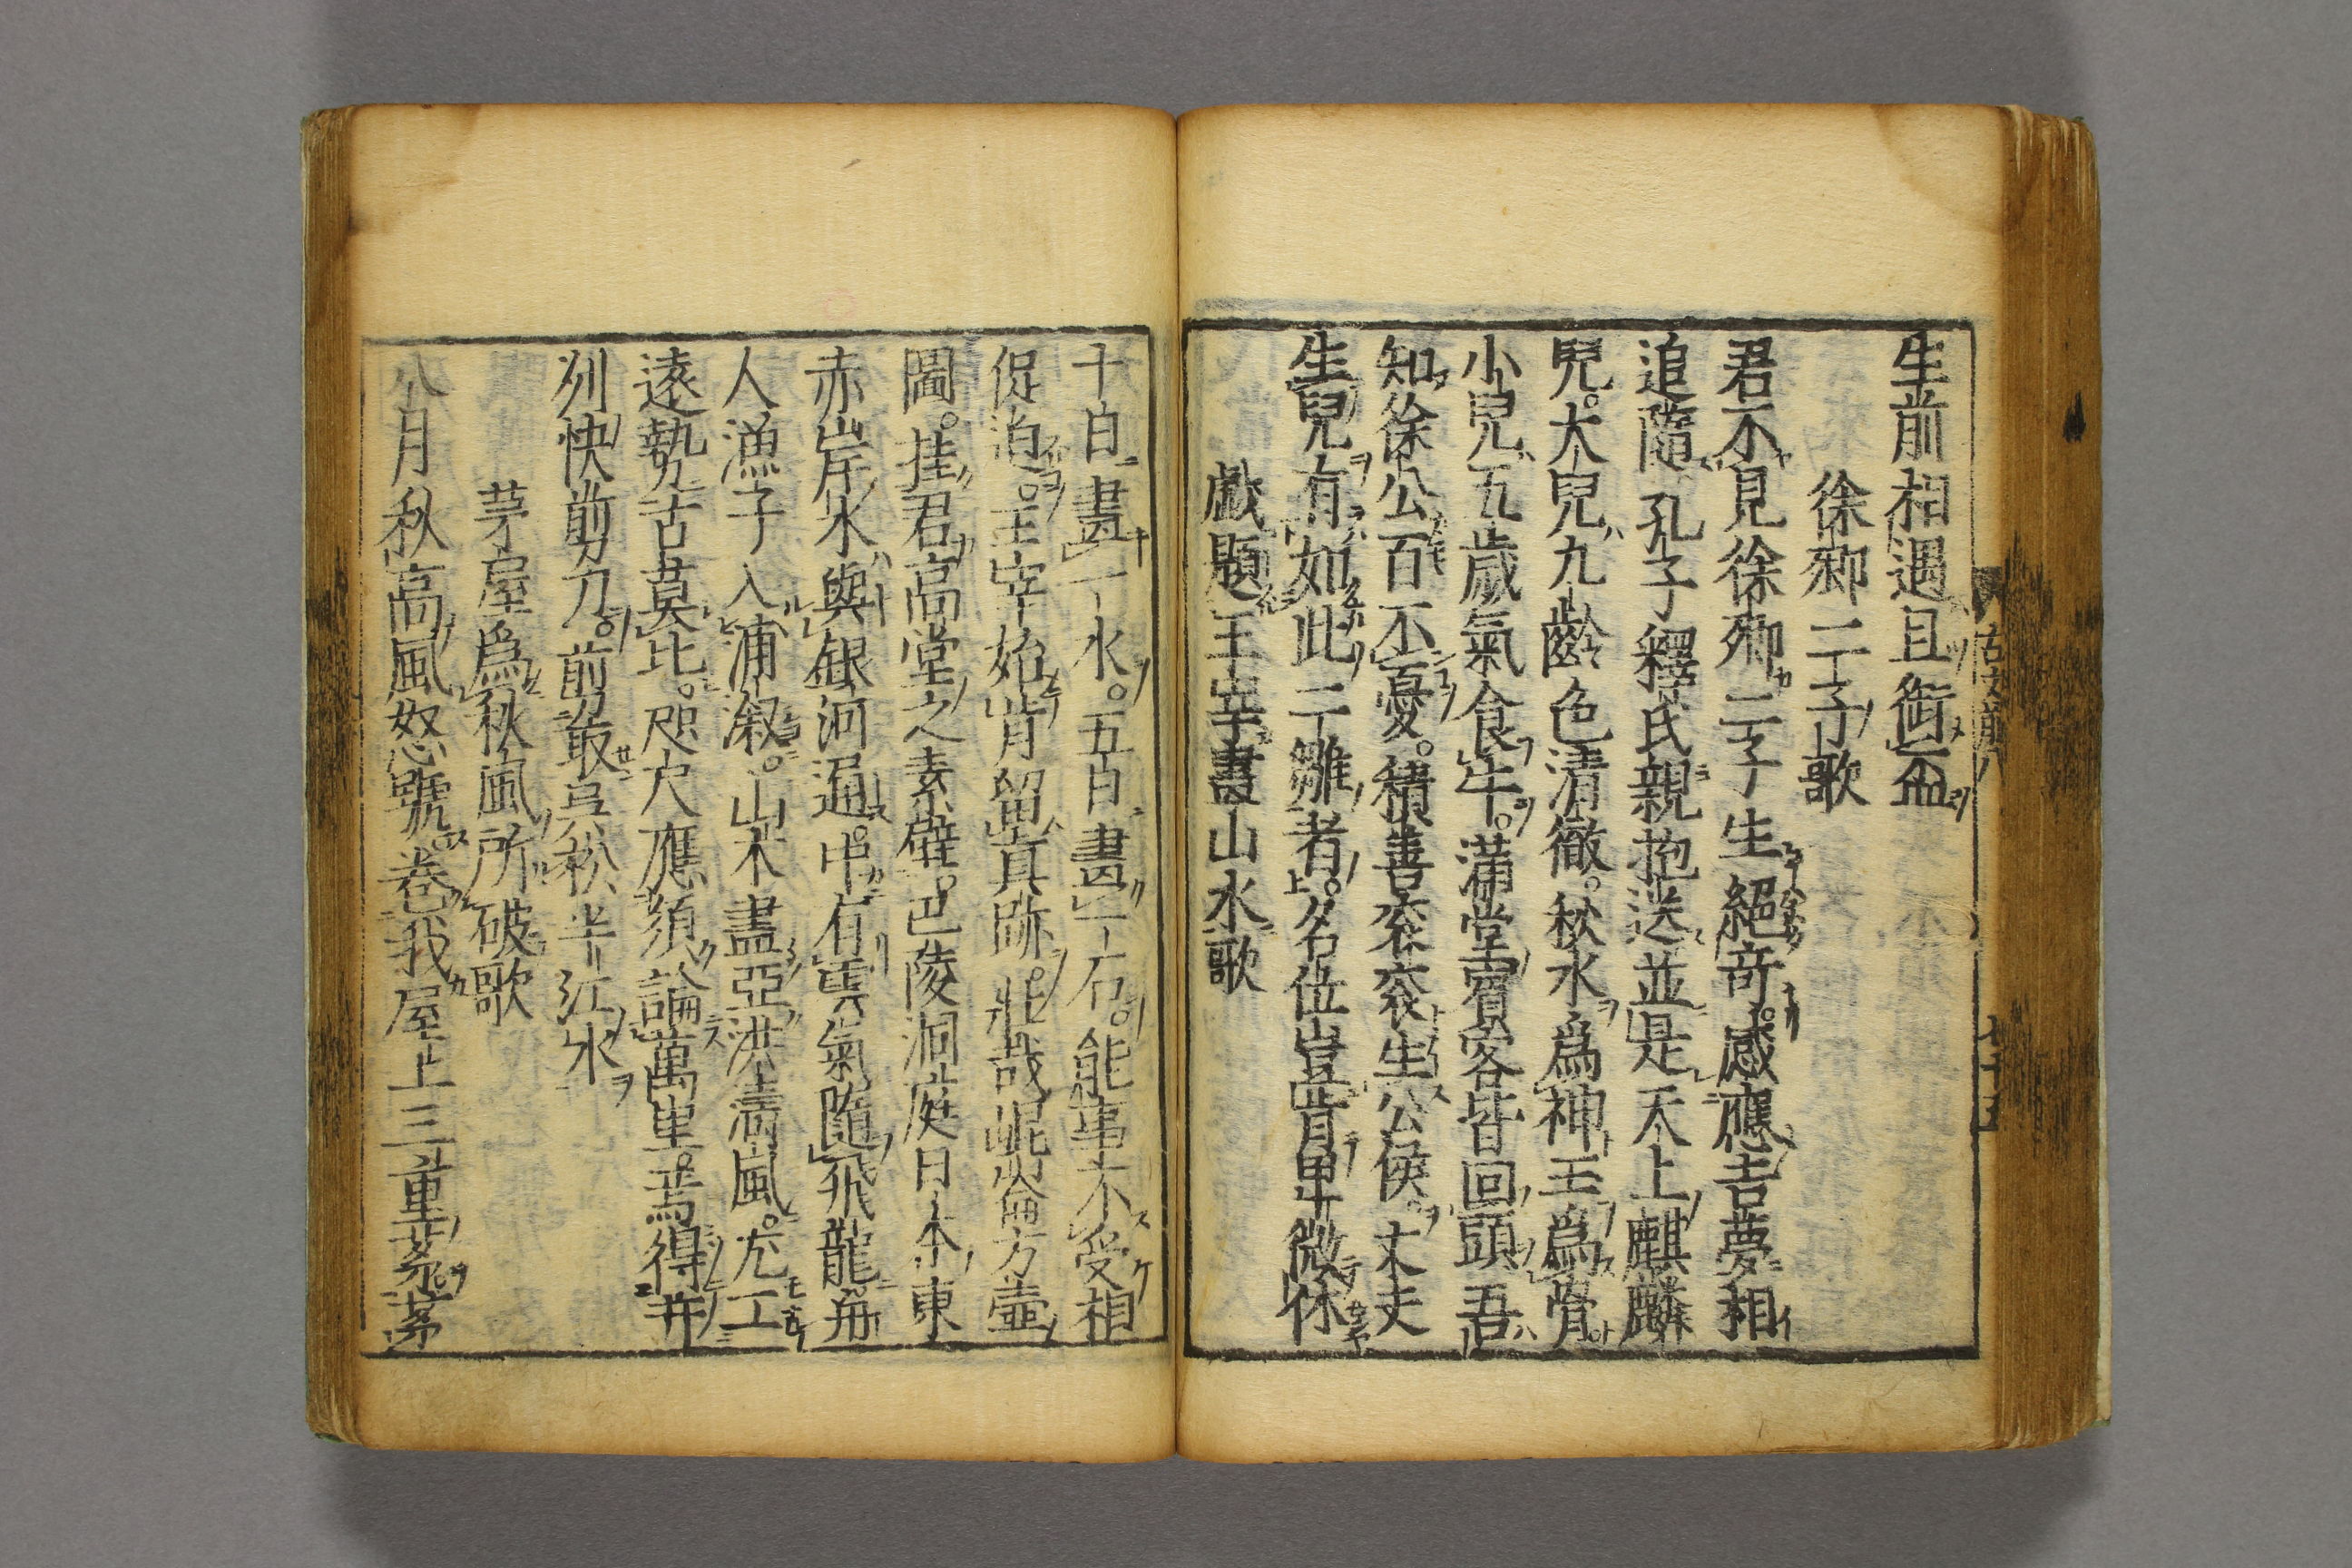 生前相遇且銜盃
徐卿二子歌
君不見徐卿二子生絕奇。感應吉夢相
追隨孔子釋氏親抱送並是天上麒麟
兒。大兒九齡色清徹。秋水爲神玉爲骨
小兒五歲氣食牛。滿堂賓客皆回頭吾
知徐公百不憂。積善袞袞生公侯。丈夫
生兒有如此二雛者。名位豈肯卑微休
戯題王宰畫山水歌
十日畫一水。五日畫一石。能事不受相
促迫。王宰始肯留真跡。壯哉崐崘方壺
圖。挂君高堂之素壁。巴陵洞庭日本東
赤岸水與銀河通。中有雲氣隨飛龍。舟
人漁子入浦漵。山木盡亞洪濤風。尤工
遠勢古莫比。咫尺應須論萬里。焉得并
州快剪刀。剪取吳松半江水
茅屋爲秋風所破歌
八月秋高風怒號。卷我屋上三重茅。茅